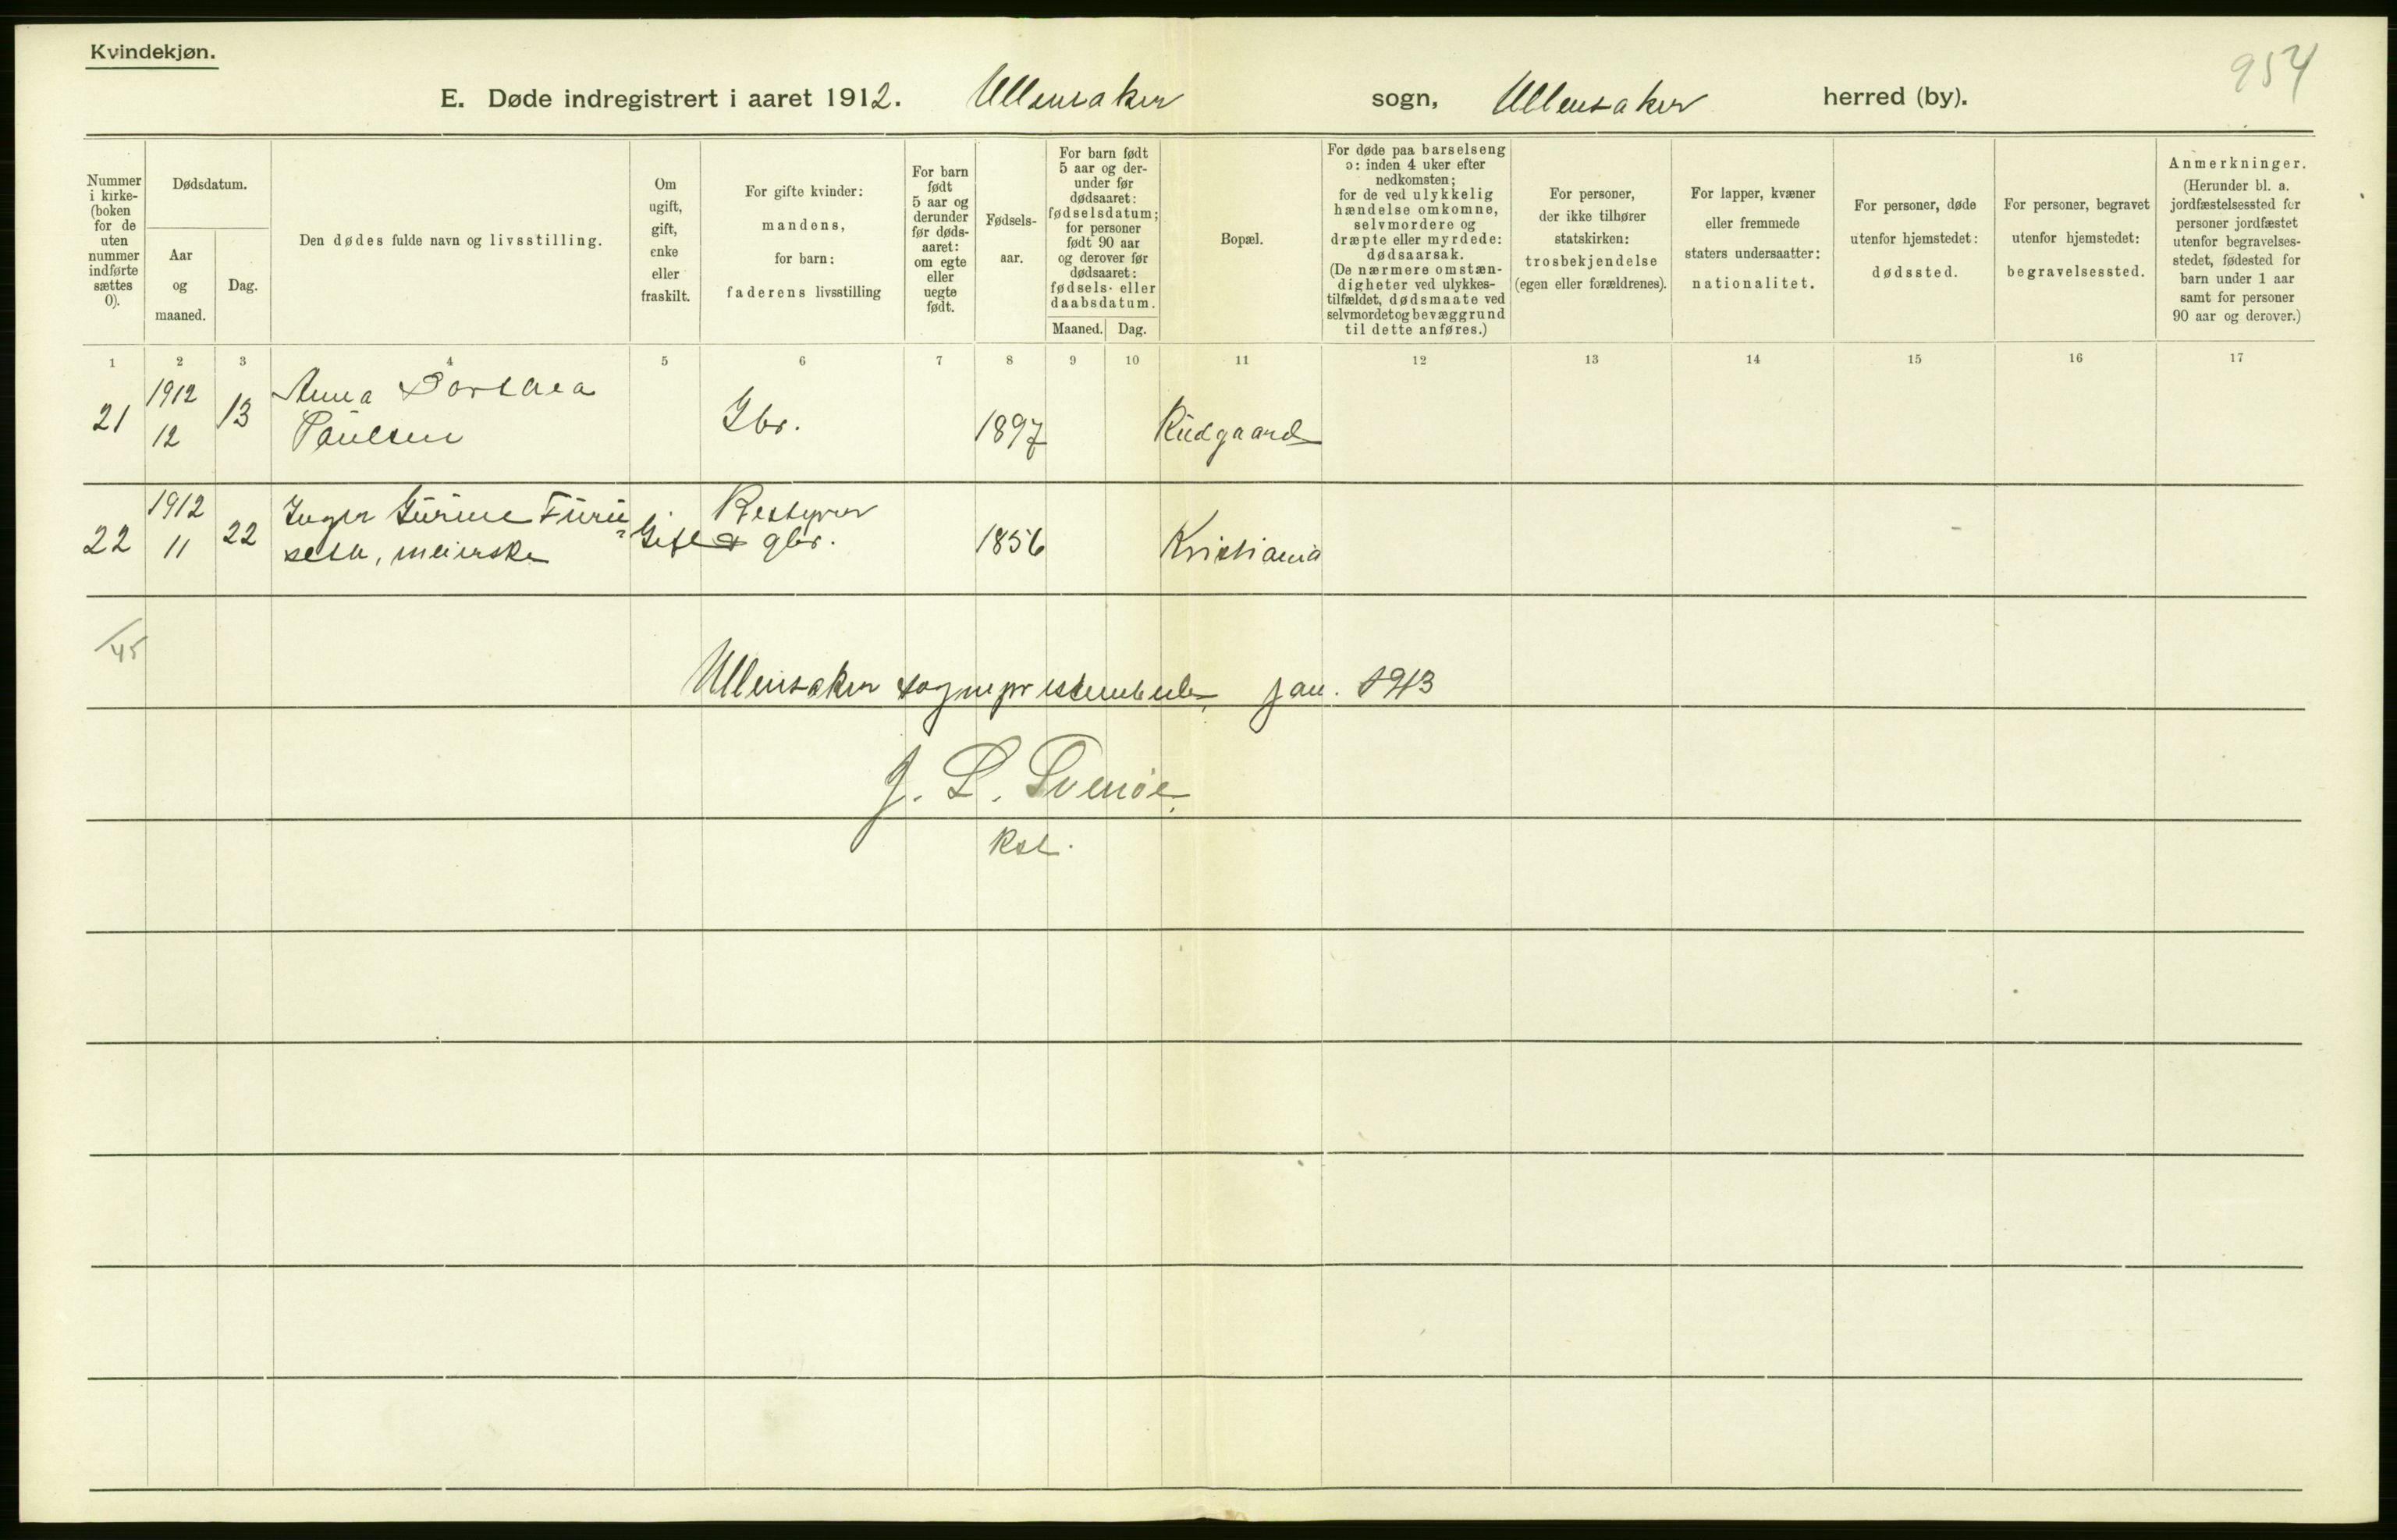 Kvindekjøn.
954
E. Døde indregistrert i aaret 1912. Ullensaker sogn, Ullensaker herred (by).
Nummer i kirke-(boken for de uten nummer indførte sættes 0).
Dødsdatum.
Aar og maaned.
Dag.
Den dødes fulde navn og livsstilling.
Om ugift, gift, enke eller fraskilt.
For gifte kvinder: mandens, for barn: faderens livsstilling
For barn født 5 aar og derunder før døds-aaret: om egte eller uegte født.
Fødsels-aar.
For barn født 5 aar og der-under før dødsaaret: fødselsdatum; for personer født 90 aar og derover før dødsaaret: fødsels- eller daabsdatum.
Maaned. Dag.
Bopæl.
For døde paa barselseng ɔ: inden 4 uker efter nedkomsten; for de ved ulykkelig hændelse omkomne, selvmordere og dræpte eller myrdede: dødsaarsak. (De nærmere omstæn-digheter ved ulykkes-tilfældet, dødsmaate ved selvmordet og bevæggrund til dette anføres.)
For personer, der ikke tilhører statskirken: trosbekjendelse (egen eller forældrenes).
For lapper, kvæner eller fremmede staters undersaatter: nationalitet.
For personer, døde utenfor hjemstedet: dødssted.
For personer, begravet utenfor hjemstedet: begravelsessted.
Anmerkninger. (Herunder bl. a. jordfæstelsessted for personer jordfæstet utenfor begravelses-stedet, fødested for barn under 1 aar samt for personer 90 aar og derover.)
1 2 3 4 5 6 7 8 9 10 11 12 13 14 15 16 17
21 1912 12 13 Anna Dorthea Paulsen Gbr. 1897 Rudgaard
22 1912 11 22 Inger Gurine Furu=
seth, meierske Gift Bestyrer & gbr. 1856 Kristiania
/45
Ullensaker sogneprestembede, jan. 1913
J. L. Svenøe.
kst.